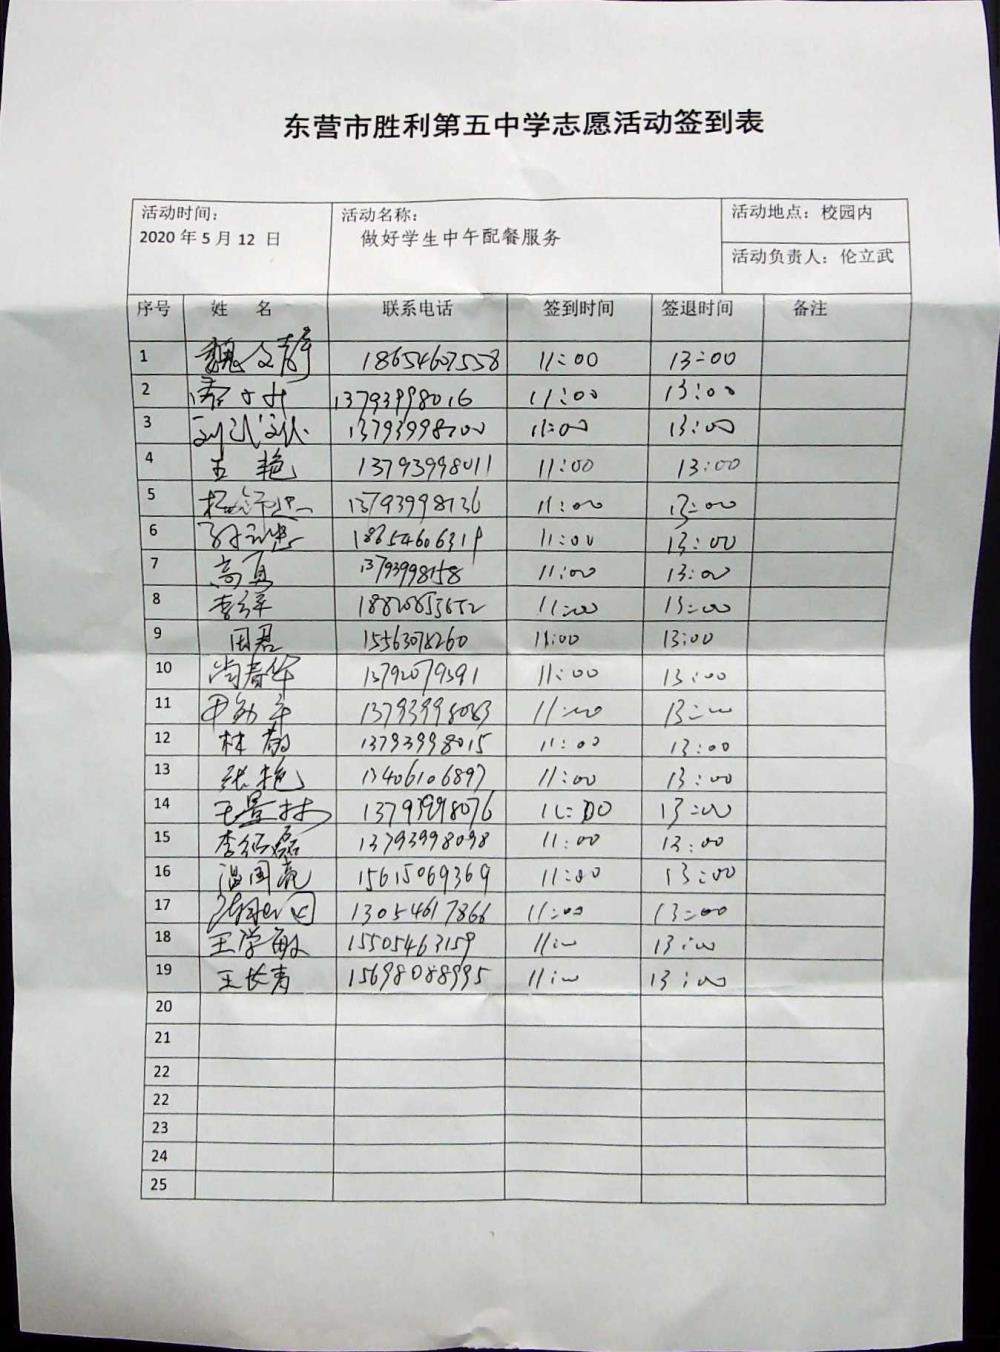 东营市胜利第五中学志愿活动签到表
活动时间： 活动名称： 活动地点：校园内
2020 年 5 月 12 日 做好学生中午配餐服务
活动负责人：伦立武
序号 姓 名 联系电话 签到时间 签退时间 备注
1 魏文静 18654607558 11:00 13:00
2 13793998016 11:00 13:00
3 13793998200 11:00 13:00
4 王艳 13793998011 11:00 13:00
5 13793998136 11:00 13:00
6 18654606319 11:00 13:00
7 高勇 13793998158 11:00 13:00
8 11:00 13:00
9 田君 15563078260 11:00 13:00
10 尚春华 13792079391 11:00 13:00
11 13793998083 11:00 13:00
12 林敬 13793998015 11:00 13:00
13 张艳 13406106897 11:00 13:00
14 王景林 13793998076 11:00 13:00
15 李红磊 13793998098 11:00 13:00
16 温国亮 15615069369 11:00 13:00
17 13054617866 11:00 13:00
18 王学敏 15505463159 11:00 13:00
19 王长青 15698088995 11:00 13:00
20
21
22
22
23
24
25